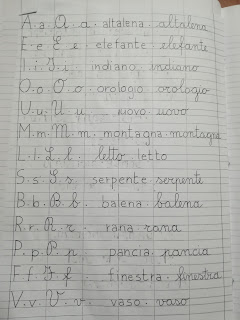 A. a. A. a. altalena. altalena
E. e. E. e. elefante. elefante
I. i. I. i. indiano. indiano
O. o. O. o. orologio. orologio
U. u. U. u. uovo. uovo
M. m. M. m. montagna. montagna
L. l. L. l. letto. letto
S. s. S. s. serpente. serpente
B. b. B. b. balena. balena
R. r. R. r. rana. rana
P. p. P. p. pancia. pancia
F. f. F. f. finestra. finestra
V. v. V. v. vaso. vaso